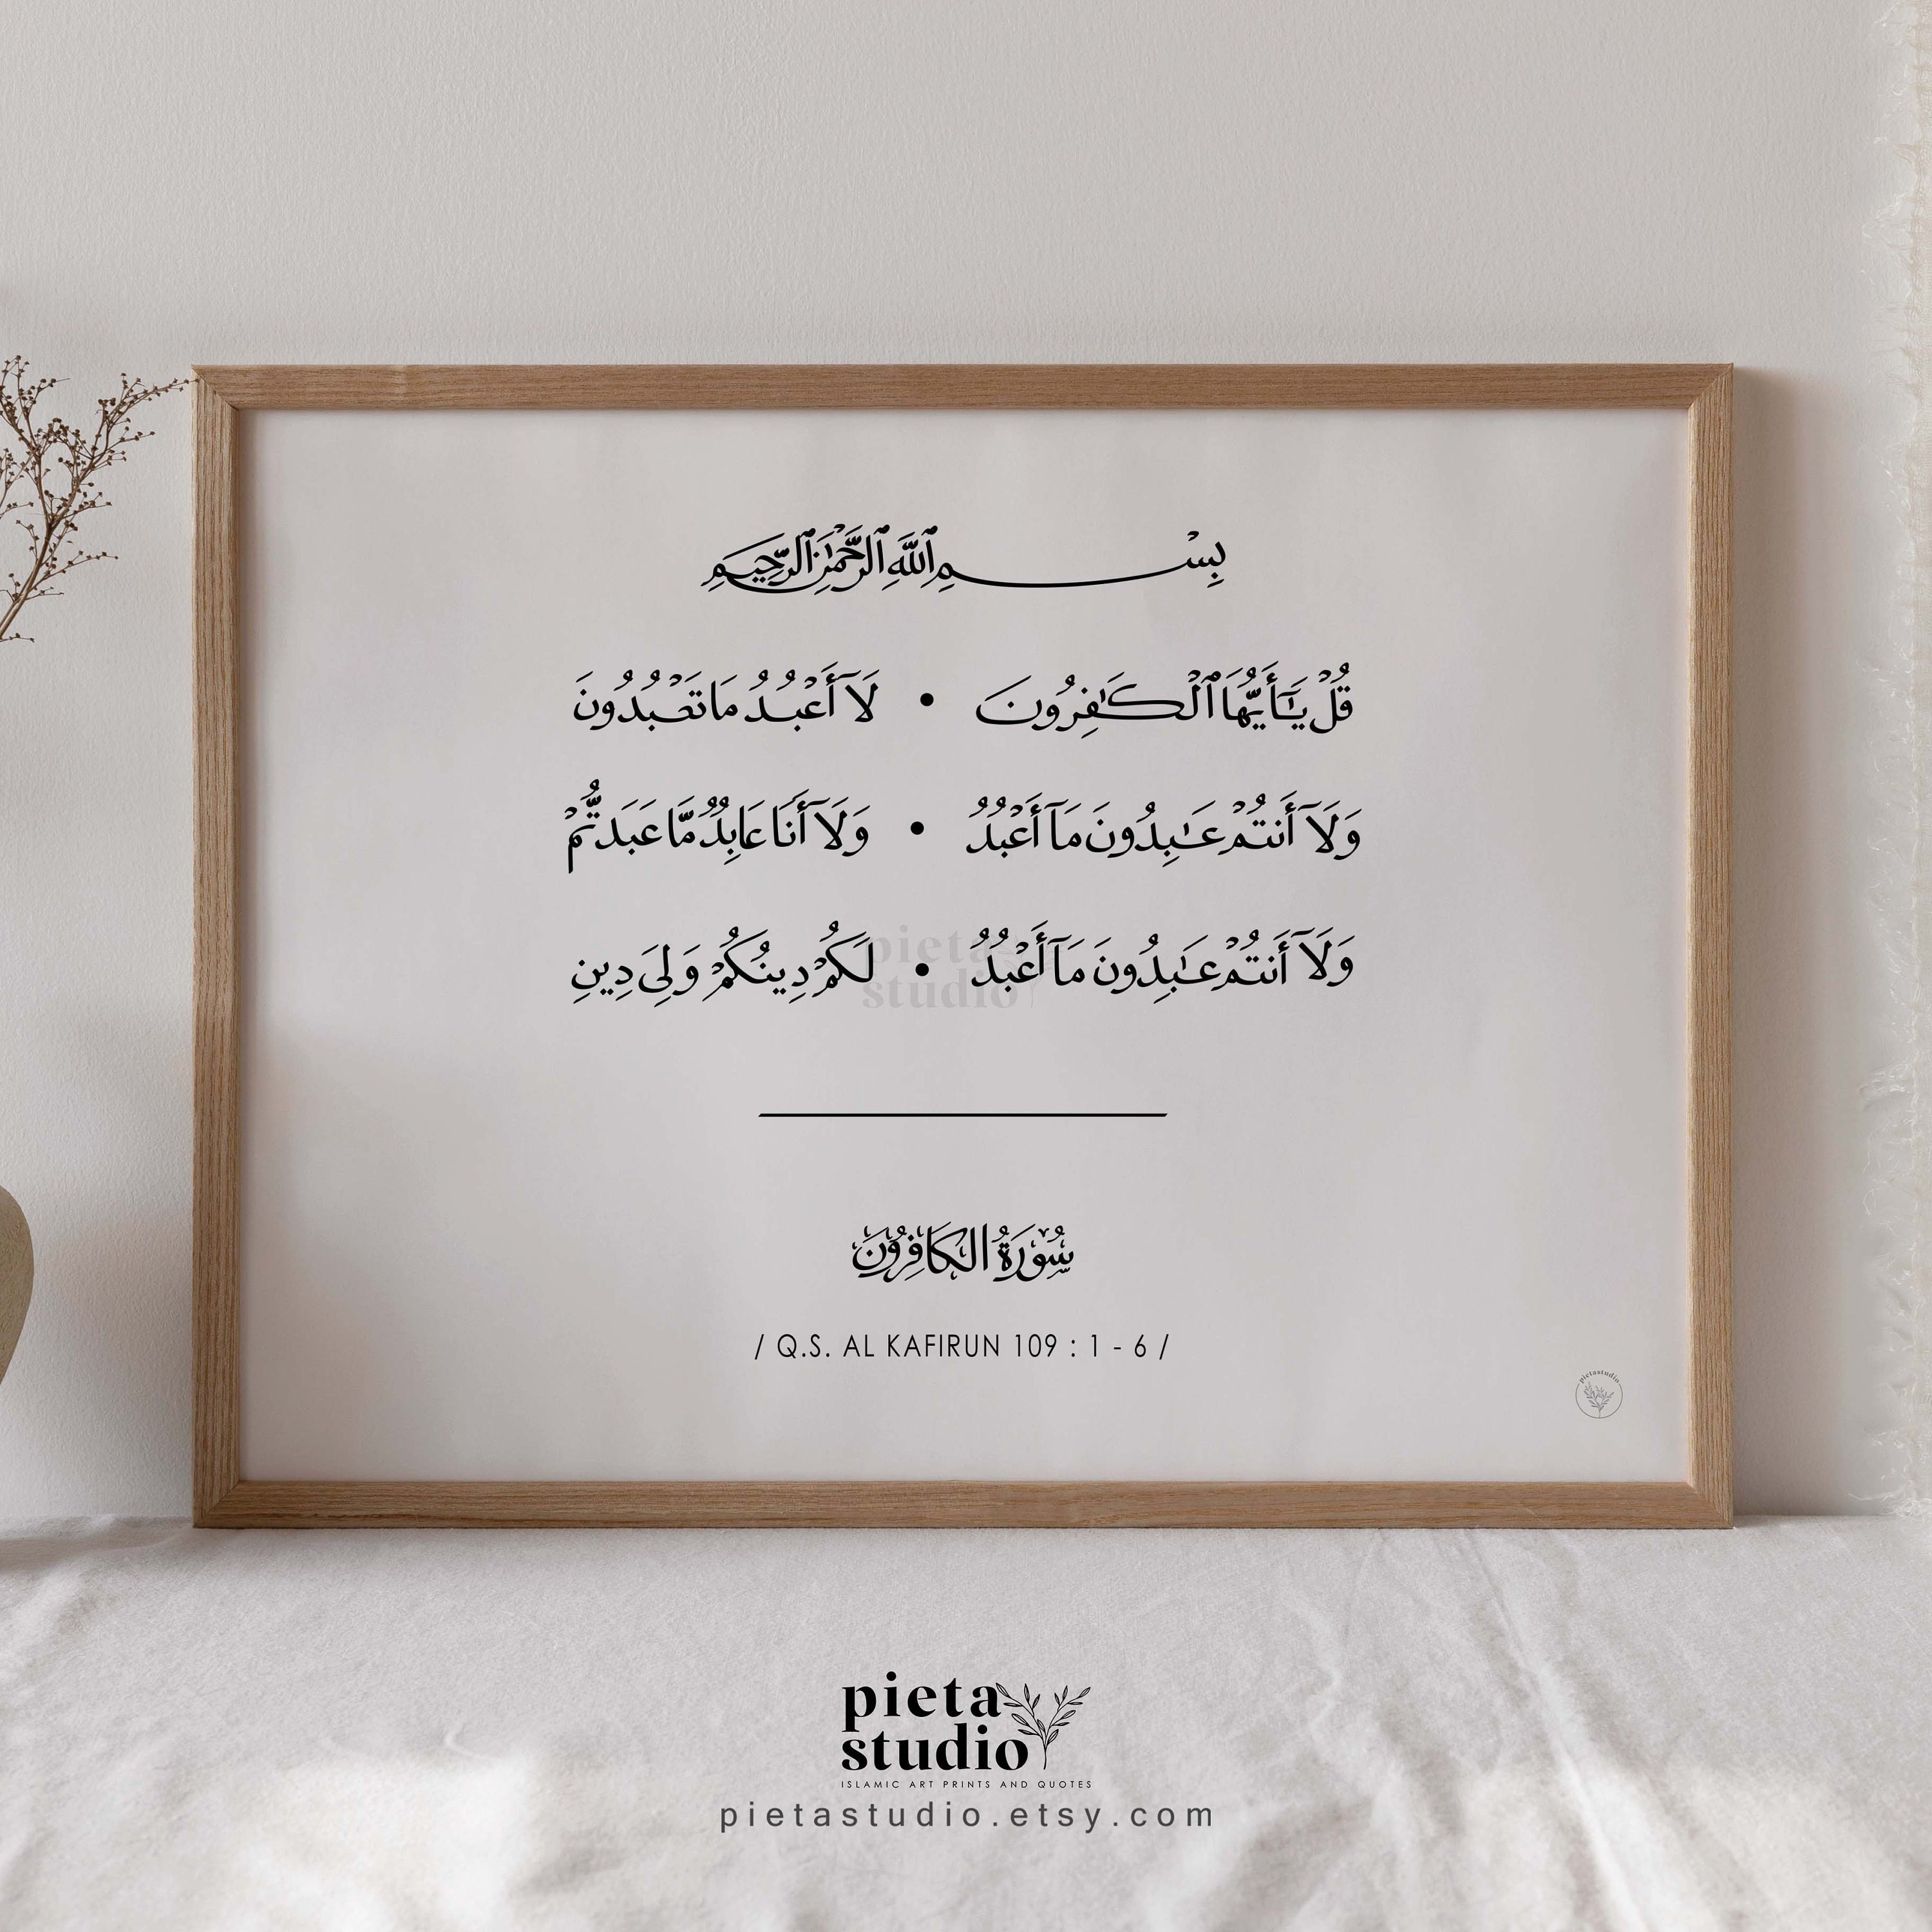 بِسْمِ ٱللَّهِ ٱلرَّحْمَٰنِ ٱلرَّحِيمِ
قُلْ يَٰٓأَيُّهَا ٱلْكَٰفِرُونَ • لَآ أَعْبُدُ مَا تَعْبُدُونَ
وَلَآ أَنتُمْ عَٰبِدُونَ مَآ أَعْبُدُ • وَلَآ أَنَا۠ عَابِدٌ مَّا عَبَدتُّمْ
وَلَآ أَنتُمْ عَٰبِدُونَ مَآ أَعْبُدُ • لَكُمْ دِينُكُمْ وَلِىَ دِينِ
pieta
studio
سُوْرَةُ الكَافِرُوْنَ
/ Q.S. AL KAFIRUN 109 : 1 - 6 /
pietastudio
pieta
studio
ISLAMIC ART PRINTS AND QUOTES
pietastudio.etsy.com